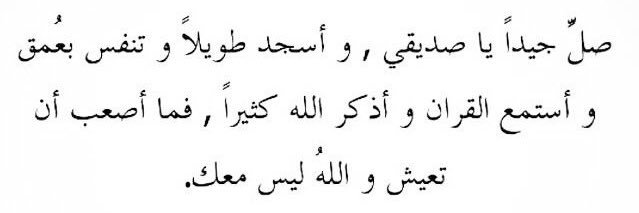 صلِّ جيداً يا صديقي , و أسجد طويلاً و تنفس بعُمق
و أستمع القران و أذكر الله كثيراً , فما أصعب أن
تعيش و اللهُ ليس معك.